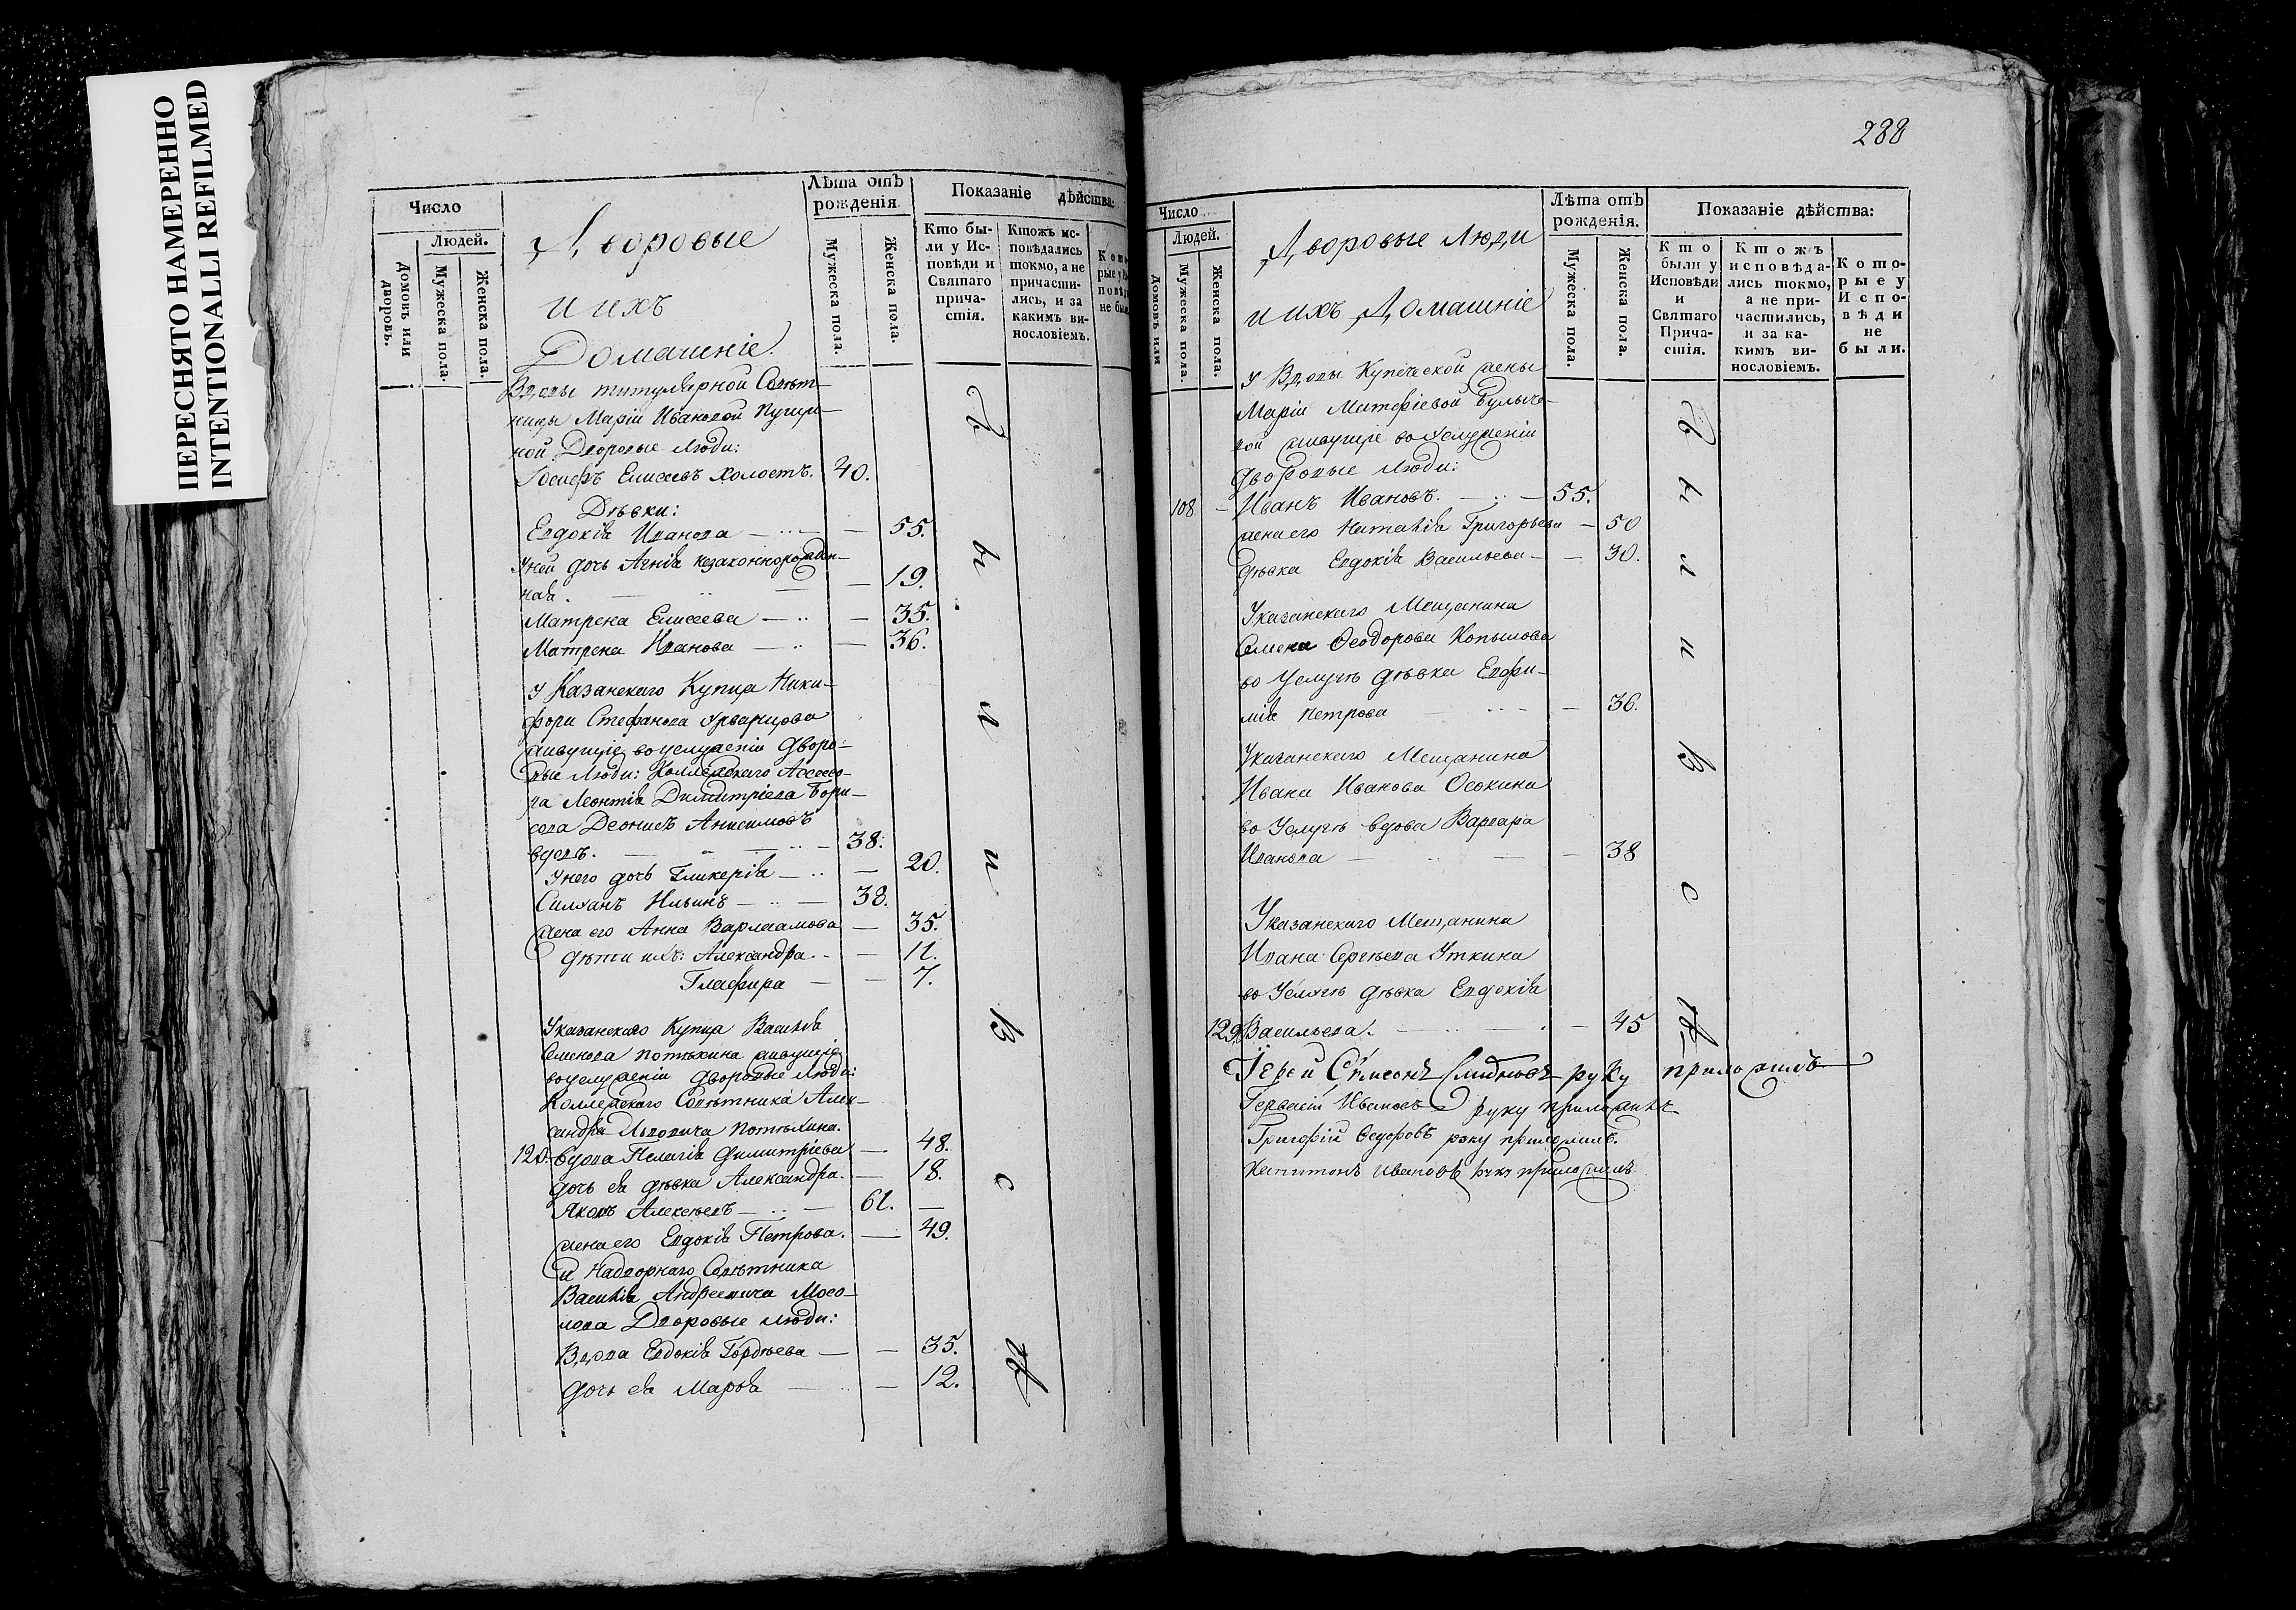 ПЕРЕСНЯТО НАМЕРЕННО
INTENTIONALLI REFILMED
Число
Людей.
Домовъ или дворовъ.
Мужеска пола.
Женска пола.
Дворовые
и ихъ
Домашніе.
Лѣта отъ рожденія.
Мужеска пола.
Женска пола.
Показаніе дѣйства:
Кто бы-
ли у Ис-
повѣди и
Святаго
прича-
стія.
Ктожъ ис-
повѣдались
токмо, а не
причасти-
лись, и за
какимъ ви-
нословіемъ.
Вдовы титулярной Совѣт-
ницы Маріи Ивановой Пущи-
ной Дворовые люди:
Іосифъ Елисеевъ холостъ. 40.
Дѣвки:
Евдокія Иванова — 55.
У ней дочь Агнія незаконнорожден-
ная. — 19.
Матрена Елисеева — 35.
Матрена Иванова — 36.
У Казанскаго Купца Ники-
фора Стефанова Урванцова
живущіе во услуженіи дворо-
вые люди: Коллежскаго Ассесо-
ра Леонтія Димитріева Бори-
сова Деонисъ Анисимовъ
вдовъ. — 38.
У него дочь Гликерія — 20.
Силуанъ Ильинъ — 38.
жена его Анна Варлаамова — 35.
дѣти ихъ: Александра. — 11.
Глафира — 7.
У казанскаго Купца Василія
Семенова Потѣхина живущіе
во услуженіи дворовые люди:
Коллежскаго Совѣтника Алек-
сандра Львовича Потѣхина.
120. вдова Пелагія Димитріева — 48.
дочь ея дѣвка Александра. — 18.
Яковъ Алексѣевъ — 61. —
жена его Евдокія Петрова. — 49.
и Надворнаго Совѣтника
Василія Андреевича Мосо-
лова Дворовые люди:
Вдова Евдокія Гордѣева — 35.
дочь ея Марѳа — 12.
Были Всѣ
288
Число
Людей.
Домовъ или
Мужеска пола.
Женска пола.
Дворовые Люди
и ихъ Домашніе
Лѣта отъ рожденія.
Мужеска пола.
Женска пола.
Показаніе дѣйства:
Кто
были у
Исповѣди
и
Святаго
Прича-
стія.
Ктожъ
исповѣда-
лись токмо,
а не при-
частились,
и за ка-
кимъ ви-
нословіемъ.
Кото-
рые у
Испо-
вѣди
не
были.
У Вдовы Купеческой жены
Маріи Матѳіевой Булыче-
вой живущіе во услуженіи
дворовые люди:
108 — Иванъ Ивановъ. — 55.
жена его Наталія Григорьева — 50
дѣвка Евдокія Васильева — 30.
У казанскаго Мещанина
Семена Ѳеодорова Копылова
во услугѣ дѣвка Евфи-
мія Петрова — 36.
У казанскаго Мещанина
Ивана Иванова Осокина
во услугѣ вдова Варвара
Иванова — 38
У казанскаго Мещанина
Ивана Сергѣева Уткина
во услугѣ дѣвка Евдокія
129. Васильева. — 45
Были Всѣ
Іерей Сѵмеонъ руку приложилъ
Гервасій Ивановъ руку приложилъ
Григорій Ѳедоровъ руку приложилъ.
Капитонъ Ивановъ руку приложилъ